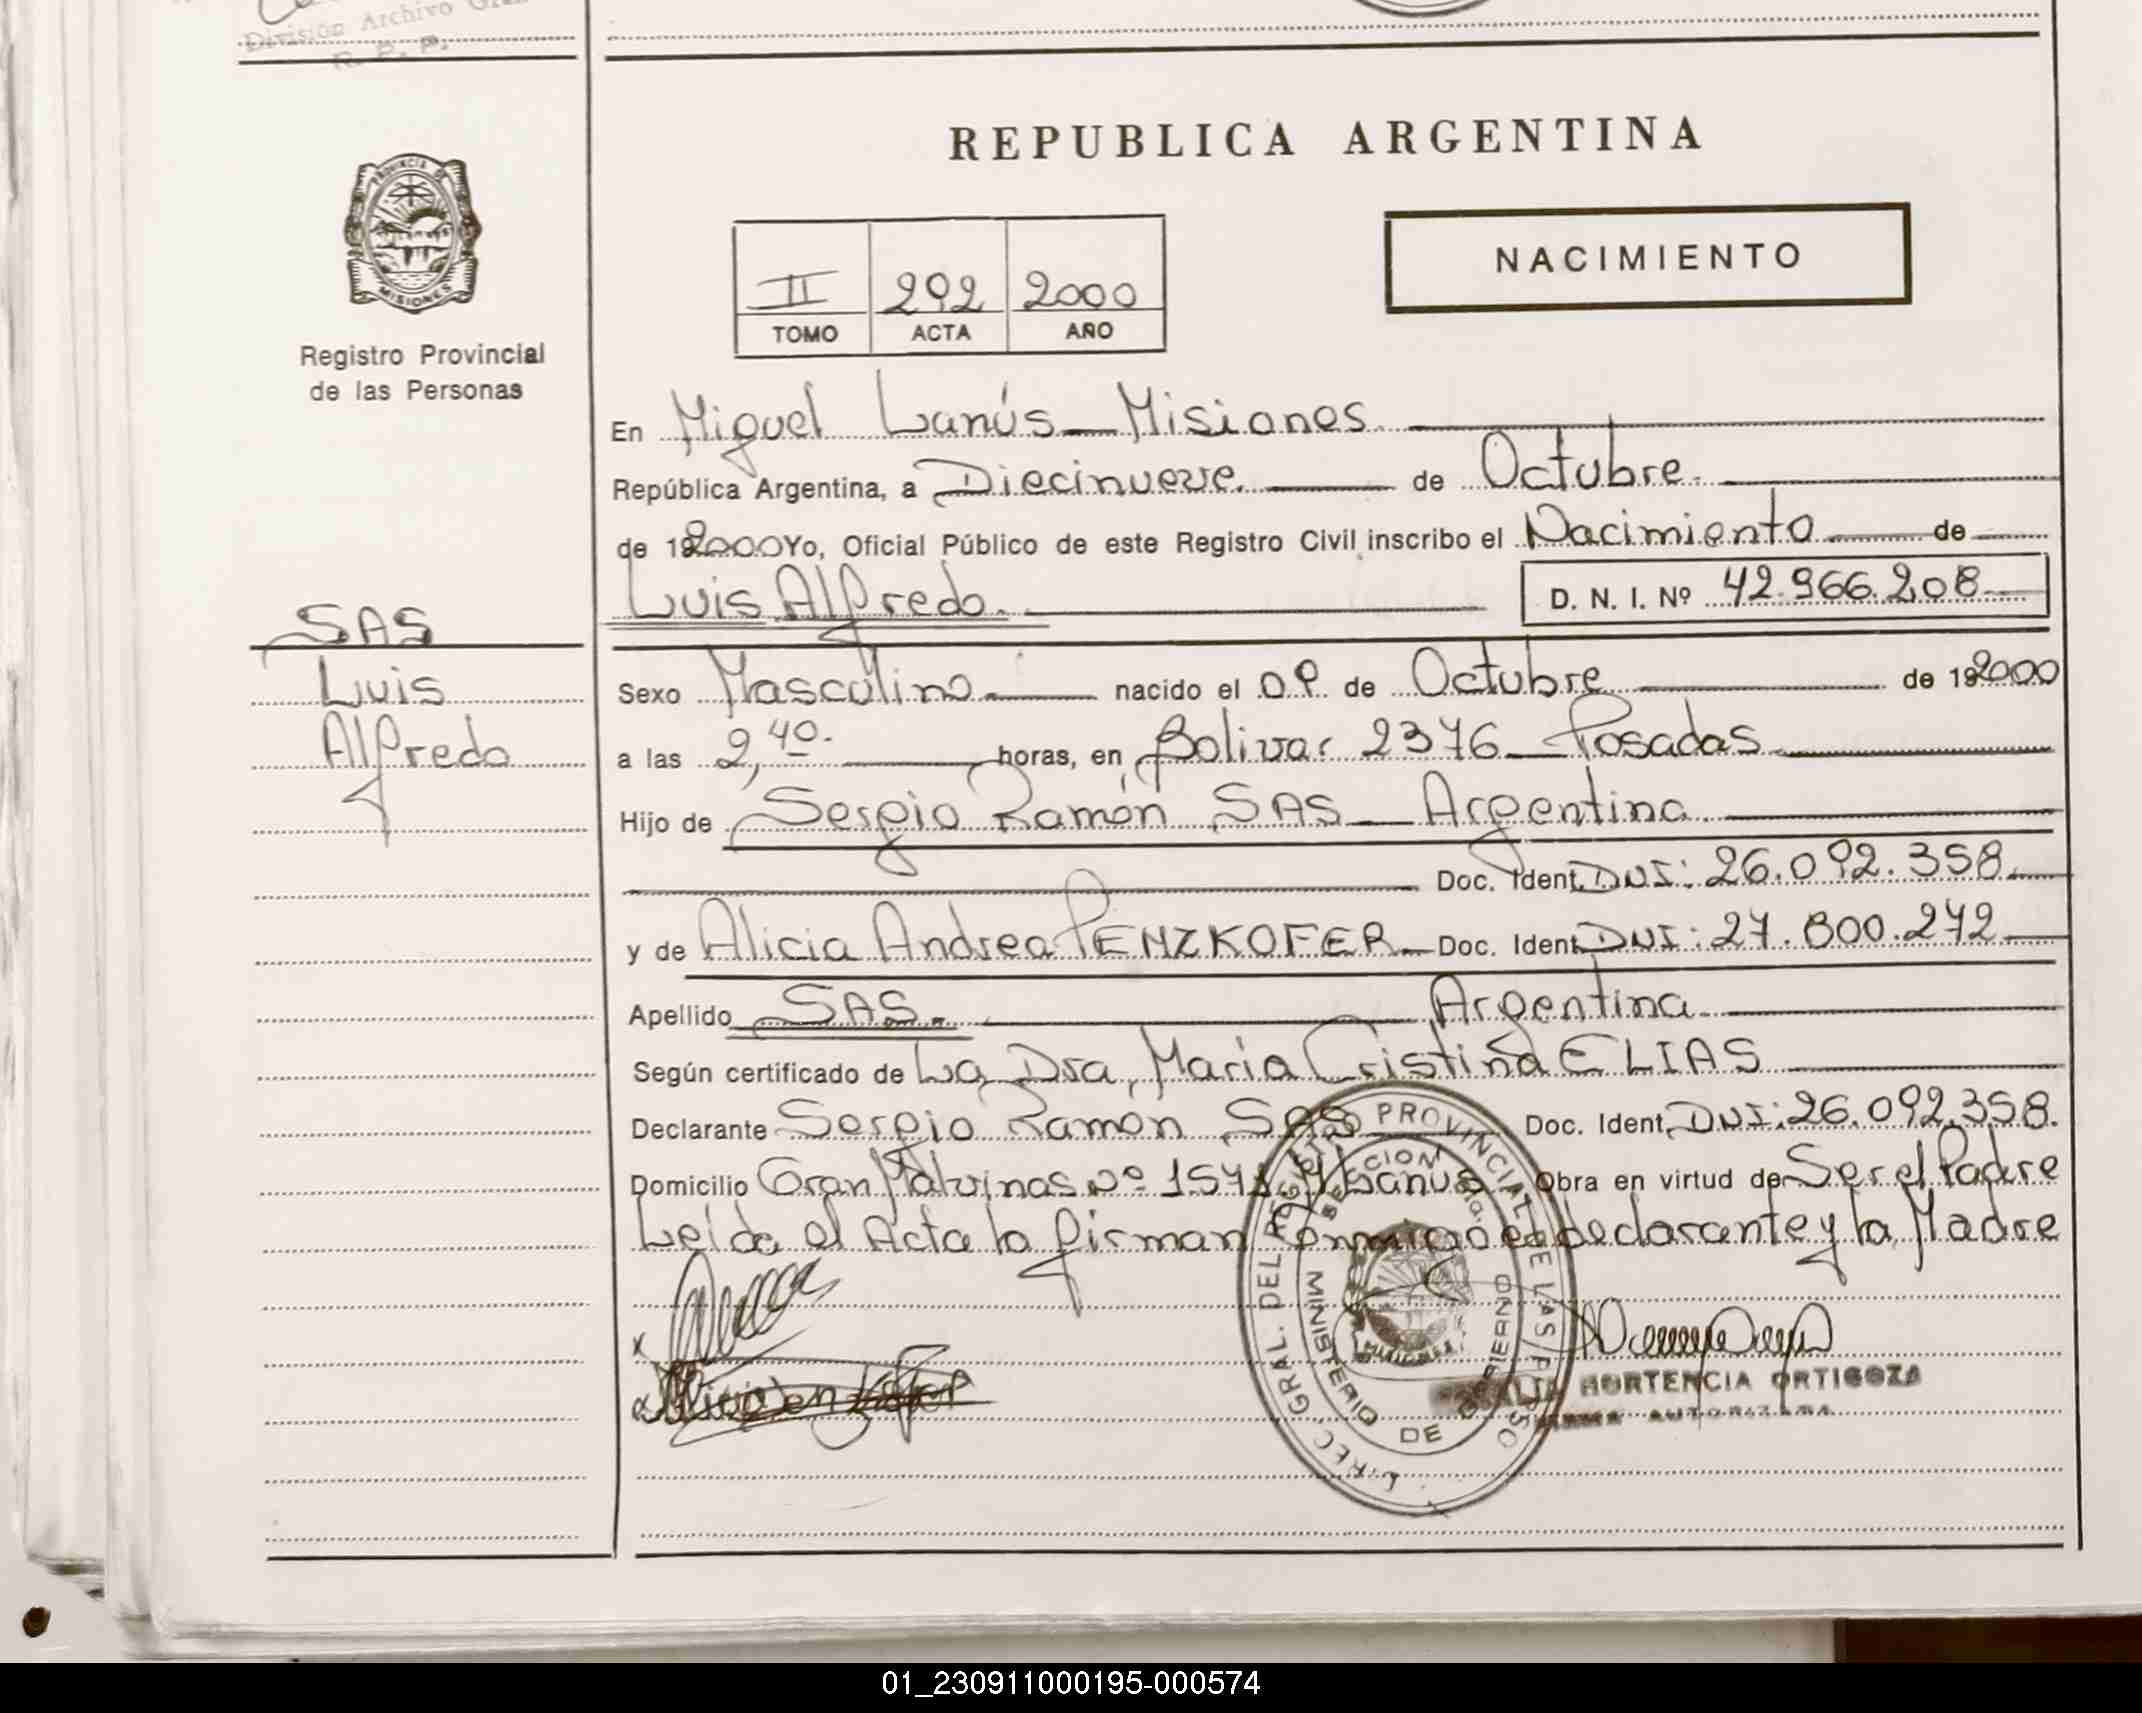 División Archivo
R. P. P.
PROVINCIA DE
MISIONES
Registro Provincial
de las Personas
SAS
Luis
Alfredo
REPUBLICA ARGENTINA
NACIMIENTO
II 292 2000
TOMO ACTA AÑO
En Miguel Lanús - Misiones.
República Argentina, a Diecinueve. de Octubre.
de 192000 Yo, Oficial Público de este Registro Civil inscribo el Nacimiento de
Luis Alfredo. D. N. I. Nº 42.966.208
Sexo Masculino. nacido el 09 de Octubre de 192000
a las 2,40. horas, en Bolivar 2376 - Posadas
Hijo de Sergio Ramón SAS - Argentina
Doc. Ident. DNI: 26.092.358.
y de Alicia Andrea PENZKOFER - Doc. Ident. DNI: 27.800.272
Apellido SAS. Argentina
Según certificado de La Dra, María Cristina ELIAS
Declarante Sergio Ramón SAS Doc. Ident. DNI: 26.092.358.
Domicilio Gran Malvinas Nº Lanús Obra en virtud de Ser el Padre
Leída el Acta la firman Conmigo el declarante y la Madre
DIREC. GRAL. DEL REGISTRO PROVINCIAL DE LAS PERSO
MINISTERIO DE GOBIERNO
MISIONES
HORTENCIA ORTIGOZA
FIRMA AUTORIZADA
01_230911000195-000574